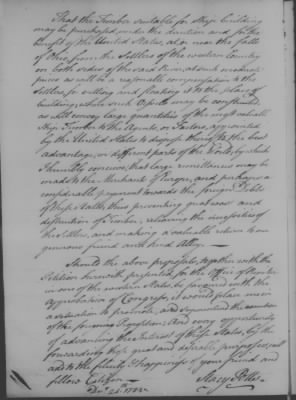 That the Timber suitable for Ship building
may be purchased under the direction and for the
benefit of the United States, at or near the falls
of Ohio, from the Settlers of the western Country
on both sides of the said river, at such moderate
prices as will be a reasonable compensation to the
Settlers, for cutting and floating it to the place of
building; where such Vessels may be constructed
as will convey large quantities of the most valuable
Ship Timber to the Agents or Factors, appointed
by the United States to dispose thereof to the best
advantage, in different parts of the World, by which
I humbly conceive, that large remittances may be
made to the Merchants of Europe, and perhaps a
considerable payment towards the foreign Debt
of these States, thus preventing great waste and
destruction of Timber, relieving the necessities of
the Settlers, and making a valuable return to our
generous friend and kind Alley.
Should the above proposals, together with the
Petition herewith presented, for the Office of
in one of the western States, be favoured with the
Approbation of Congress, it would place me in
a situation to promote, and Superintend the execution
of the foregoing Propositions; And every opportunity
of advancing the Interest of these States, by the
forwarding these great and desirable purposes, will
add to the felicity & happiness of your friend and
fellow Citizen
Stacy Potts